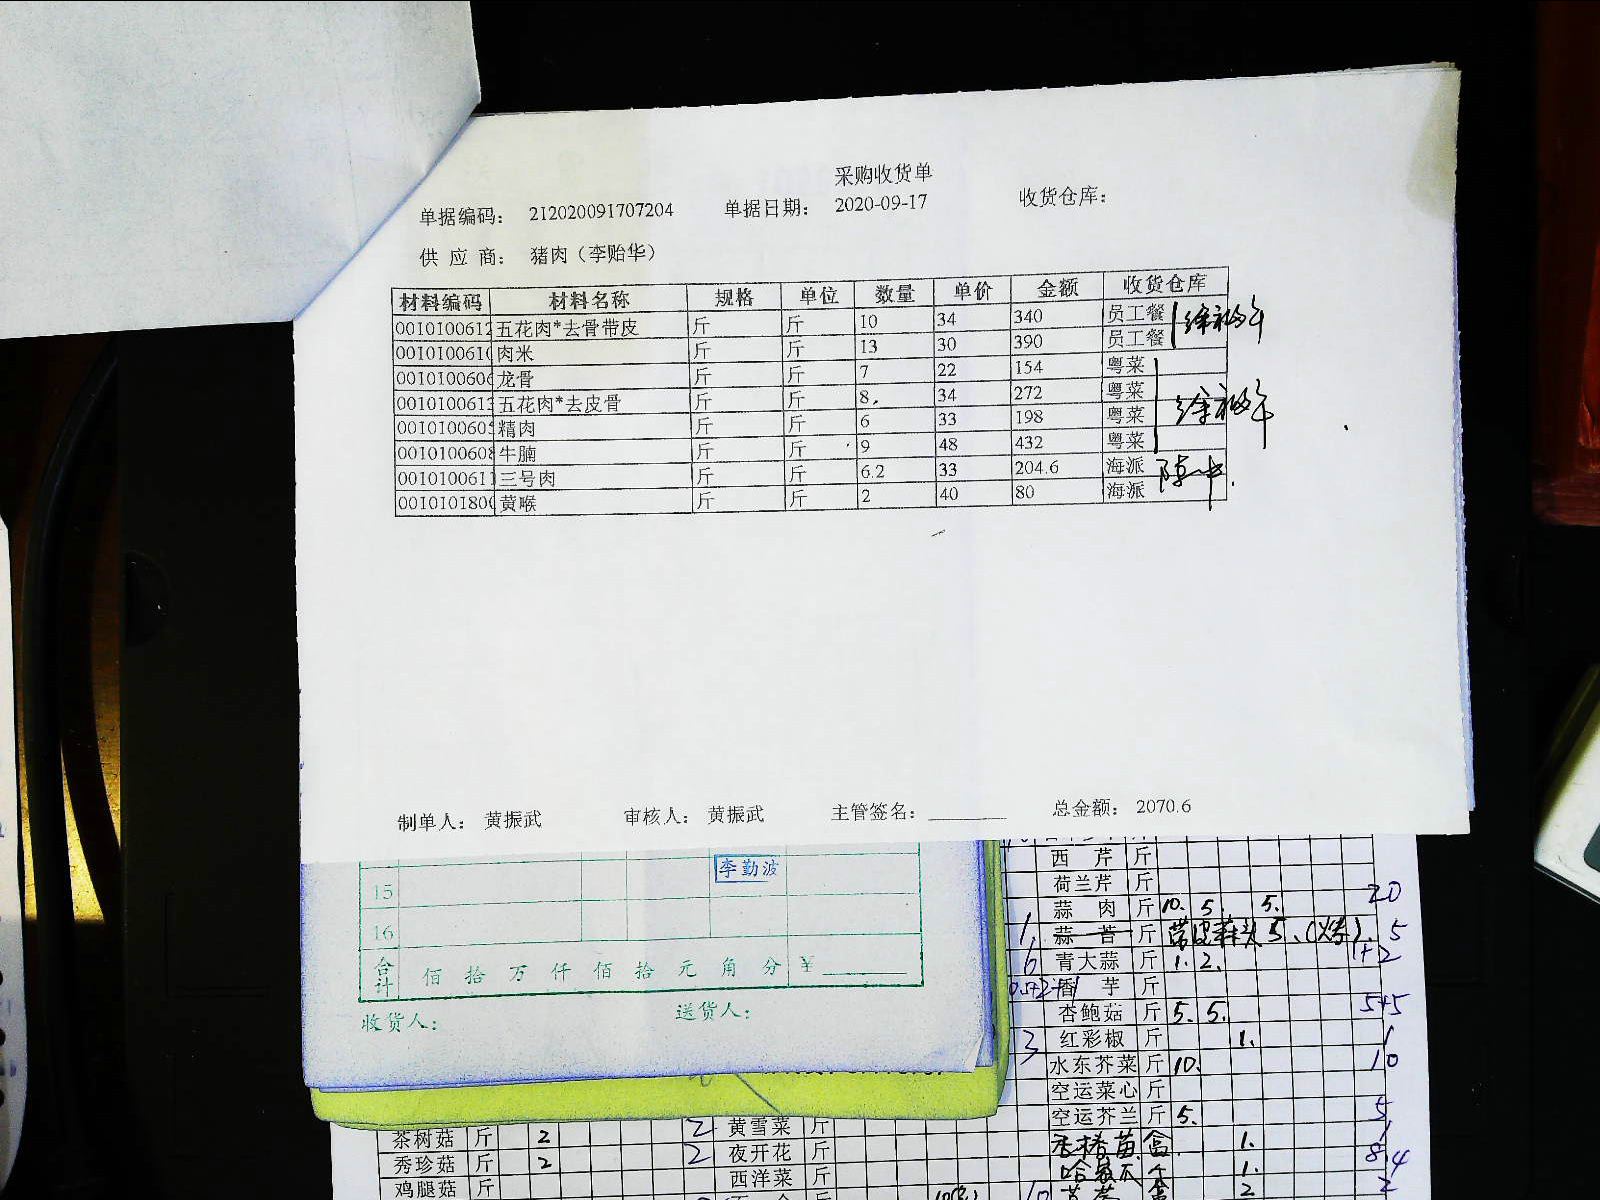 采购收货单
单据编码： 212020091707204 单据日期： 2020-09-17 收货仓库：
供 应 商： 猪肉（李贻华）
材料编码 材料名称 规格 单位 数量 单价 金额 收货仓库
0010100612 五花肉*去骨带皮 斤 斤 10 34 340 员工餐
001010061 肉米 斤 斤 13 30 390 员工餐
001010060 龙骨 斤 斤 7 22 154 粤菜
001010061 五花肉*去皮骨 斤 斤 8 34 272 粤菜
001010060 精肉 斤 斤 6 33 198 粤菜
001010060 牛腩 斤 斤 9 48 432 粤菜
001010061 三号肉 斤 斤 6.2 33 204.6 海派
001010180 黄喉 斤 斤 2 40 80 海派
制单人： 黄振武 审核人： 黄振武 主管签名： 总金额： 2070.6
李勤波
15
16
合计 佰 拾 万 仟 佰 拾 元 角 分 ¥
收货人： 送货人：
西 芹 斤
荷兰芹 斤
蒜 肉 斤 10. 5. 5. 20
1. 蒜 苔 斤 5. 5
6 青大蒜 斤 1. 2. 1+2
香 芋 斤
杏鲍菇 斤 5. 5. 5+5
3 红彩椒 斤 1. 1
水东芥菜 斤 10. 10
空运菜心 斤
空运芥兰 斤 5. 5
茶树菇 斤 2 2 黄雪菜 斤
香椿苗 盒 1. 1
秀珍菇 斤 2 2 夜开花 斤
1. 8.4
鸡腿菇 斤 西洋菜 斤
盒 2 2